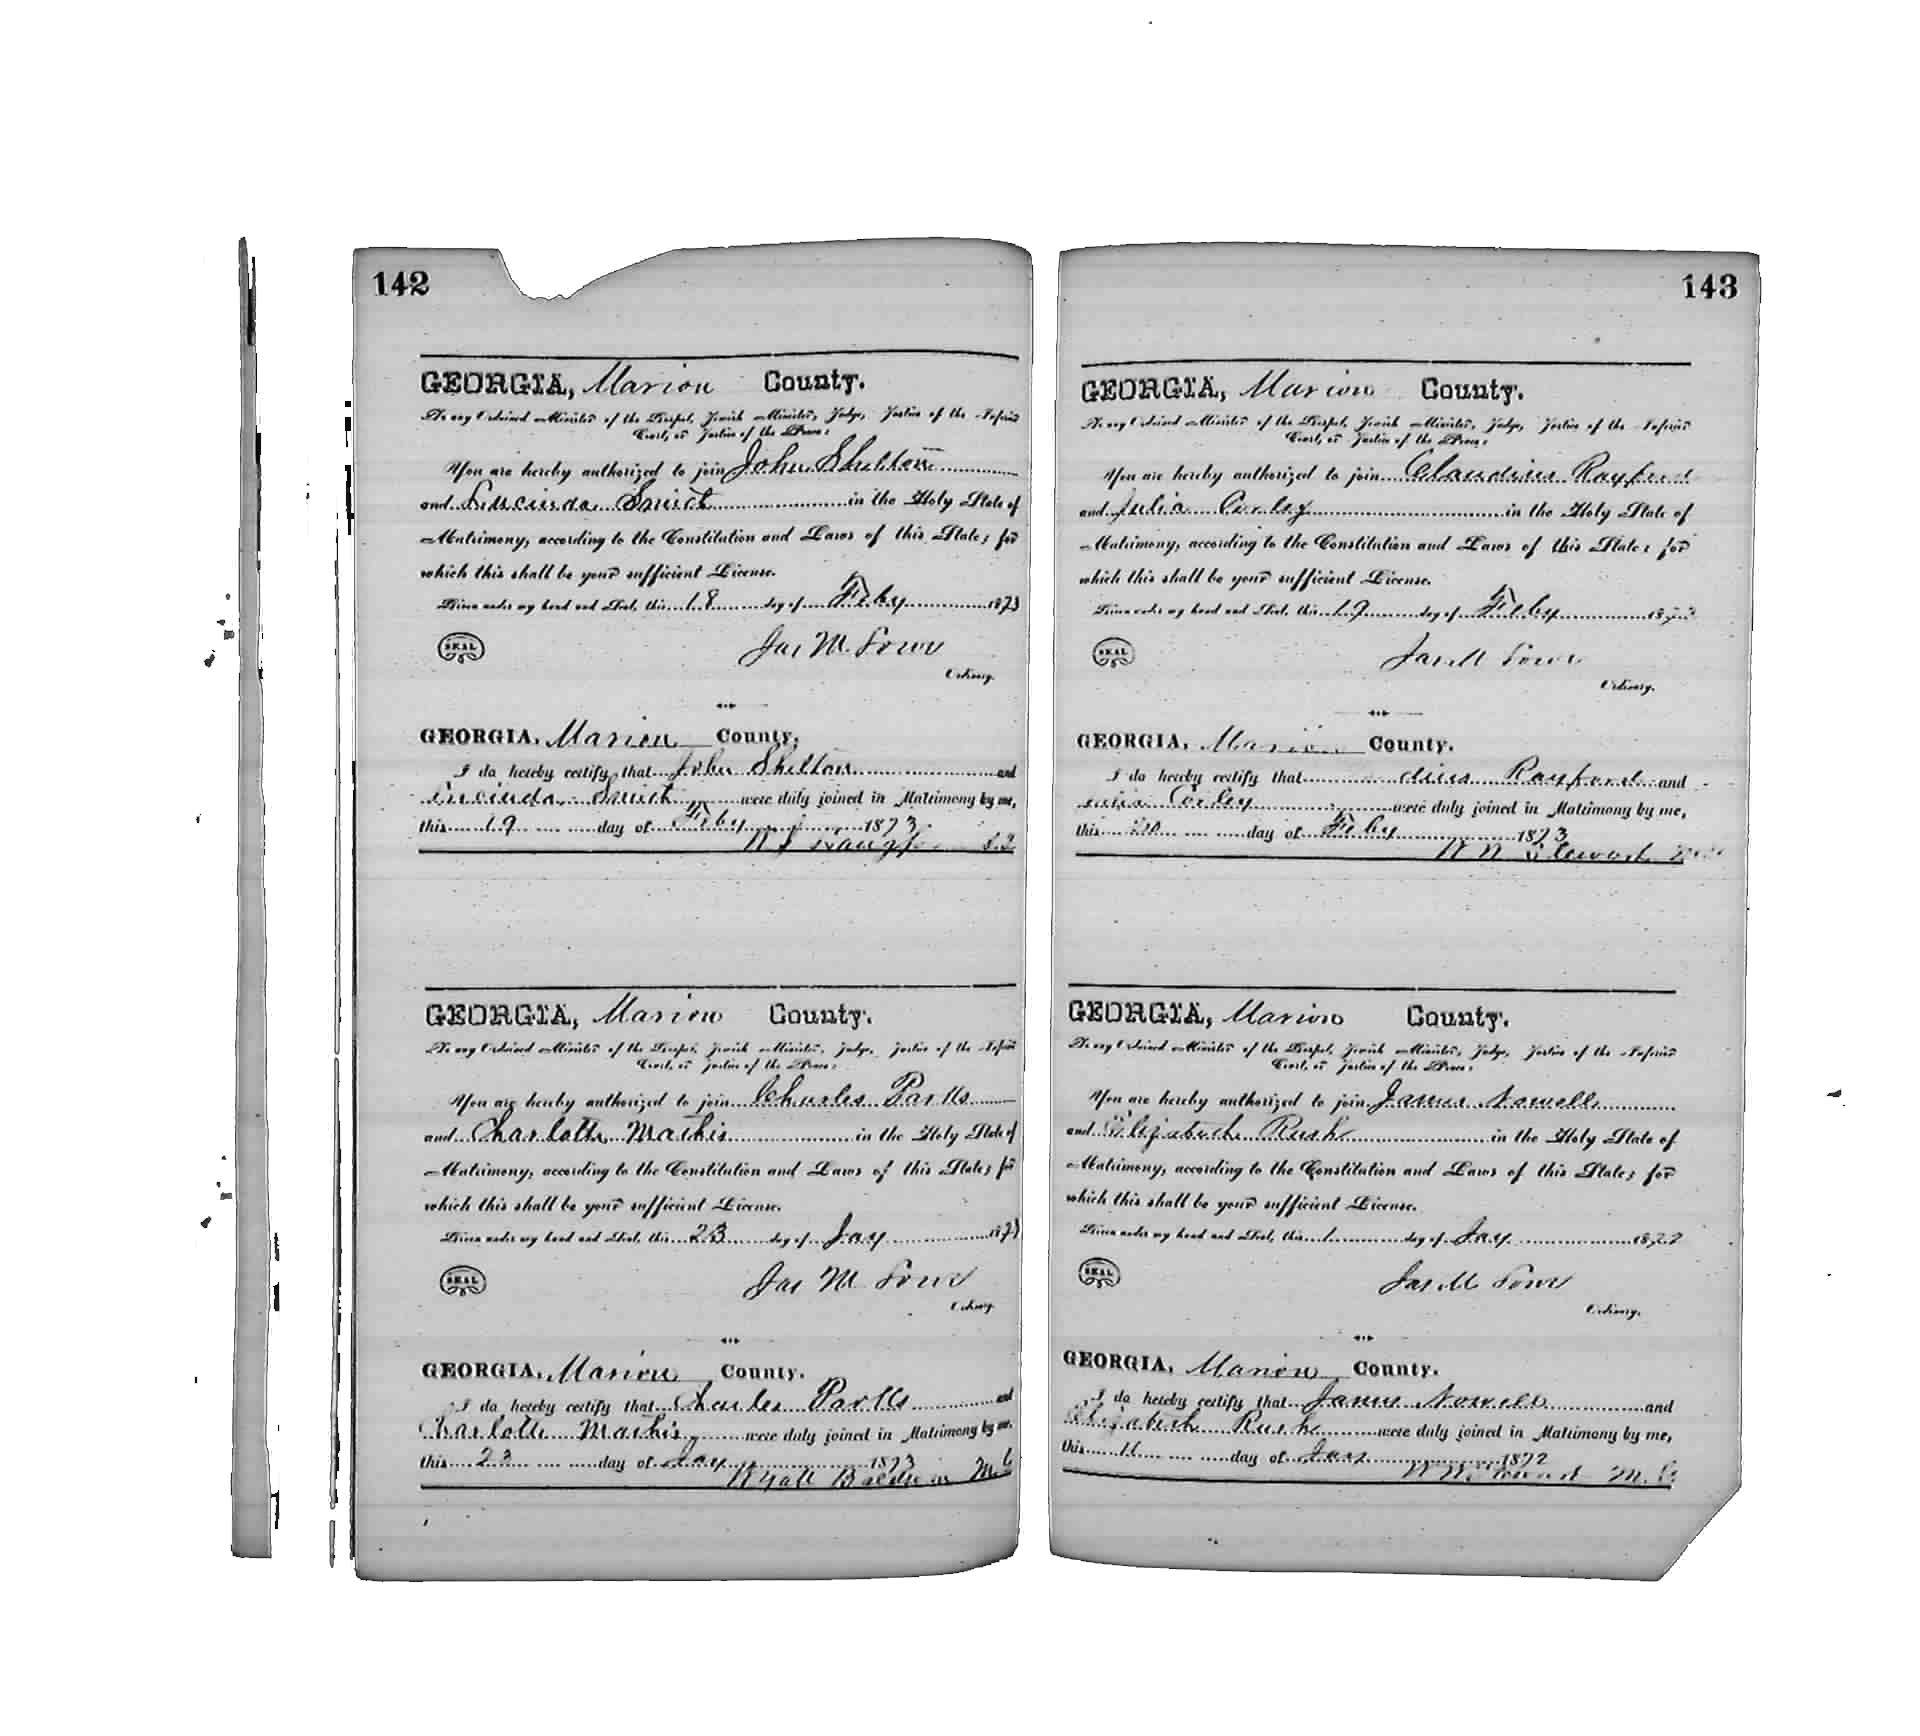 142
GEORGIA, Marion County.
To any Ordained Minister of the Gospel, Jewish Minister, Judge, Justice of the Inferior
Court, or Justice of the Peace:
You are hereby authorized to join John Shelton
and Lucinda Smith in the Holy State of
Matrimony, according to the Constitution and Laws of this State; for
which this shall be your sufficient License.
Given under my hand and Seal, this 18 day of Feby 1873
SEAL
Jas M. Lowe
Ordinary.
GEORGIA, Marion County.
I do hereby certify that John Shelton and
Lucinda Smith were duly joined in Matrimony by me,
this 19 day of Feby 1873
GEORGIA, Marion County.
To any Ordained Minister of the Gospel, Jewish Minister, Judge, Justice of the Inferior
Court, or Justice of the Peace:
You are hereby authorized to join Charles Parks
and Charlotte Mathis in the Holy State of
Matrimony, according to the Constitution and Laws of this State; for
which this shall be your sufficient License.
Given under my hand and Seal, this 23 day of Jay 1873
SEAL
Jas M. Lowe
Ordinary.
GEORGIA, Marion County.
I do hereby certify that Charles Parks and
Charlotte Mathis were duly joined in Matrimony by me,
this 23 day of Jay 1873
Wyatt Baldwin M.G
143
GEORGIA, Marion County.
To any Ordained Minister of the Gospel, Jewish Minister, Judge, Justice of the Inferior
Court, or Justice of the Peace:
You are hereby authorized to join Claudius Rayford
and Julia Corley in the Holy State of
Matrimony, according to the Constitution and Laws of this State; for
which this shall be your sufficient License.
Given under my hand and Seal, this 19 day of Feby 1873
SEAL
Jas M Lowe
Ordinary.
GEORGIA, Marion County.
I do hereby certify that dius Rayford and
Corley were duly joined in Matrimony by me,
this 20 day of Feby 1873
W W Stewart
GEORGIA, Marion County.
To any Ordained Minister of the Gospel, Jewish Minister, Judge, Justice of the Inferior
Court, or Justice of the Peace:
You are hereby authorized to join James Nowell
and Elizabeth Rush in the Holy State of
Matrimony, according to the Constitution and Laws of this State; for
which this shall be your sufficient License.
Given under my hand and Seal, this 1 day of Jay 1872
SEAL
Jas M Lowe
Ordinary.
GEORGIA, Marion County.
I do hereby certify that James Nowell and
Elizabeth Rush were duly joined in Matrimony by me,
this 11 day of Jay 1872
M.G